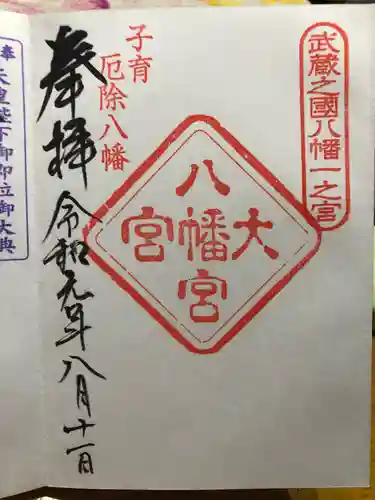 武蔵之國八幡一之宮
大
八幡宮
宮
子育
厄除八幡
奉拝
令和元年八月十一日
奉
天皇陛下御即位御大典